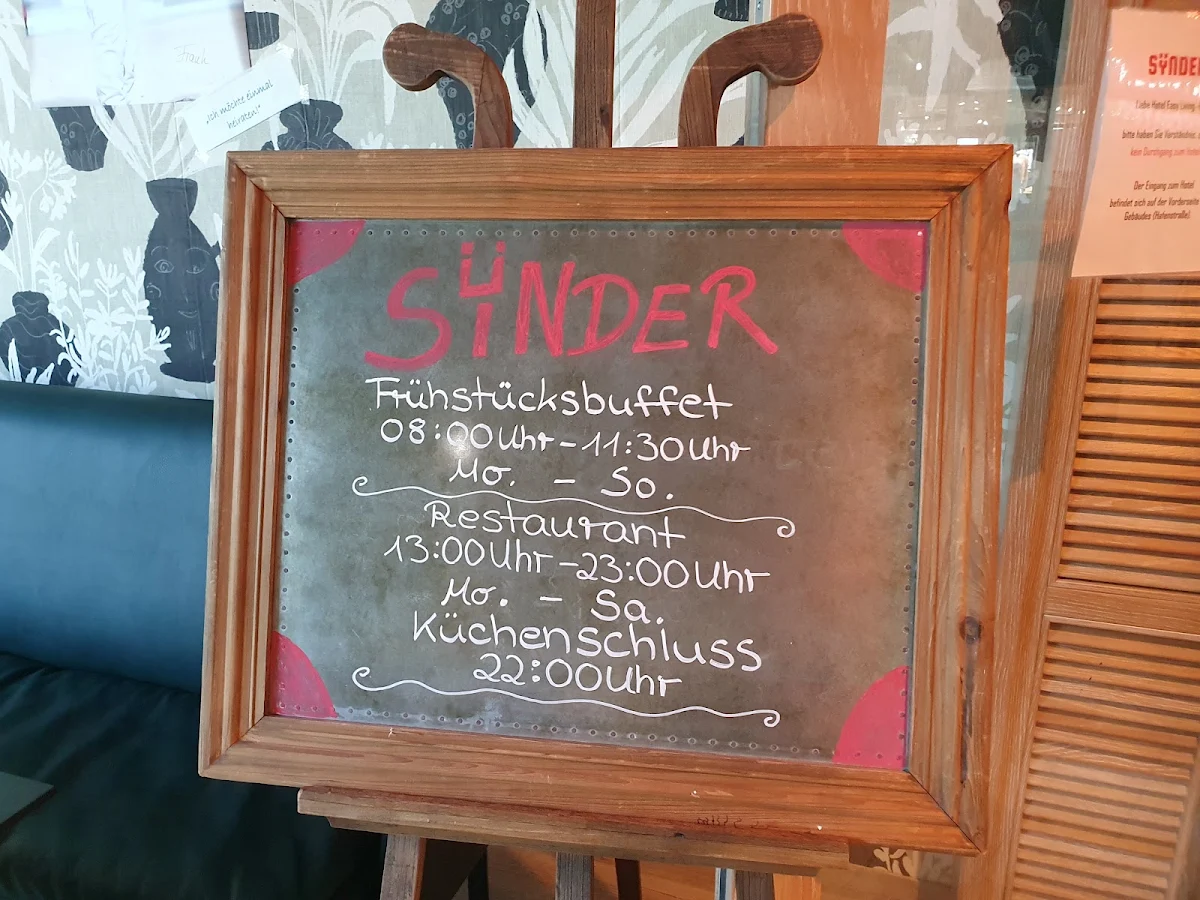 „Ich möchte einmal
heiraten!"
SÜNDER
Frühstücksbuffet
08:00Uhr-11:30Uhr
Mo. - So.
Restaurant
13:00Uhr-23:00Uhr
Mo. - Sa.
Küchenschluss
22:00Uhr
Liebe Hotel Easy Living
bitte haben Sie
kein Durchgang zum
Der Eingang zum Hotel
befindet sich auf der Vorderseite
Gebäudes (Hafenstraße)